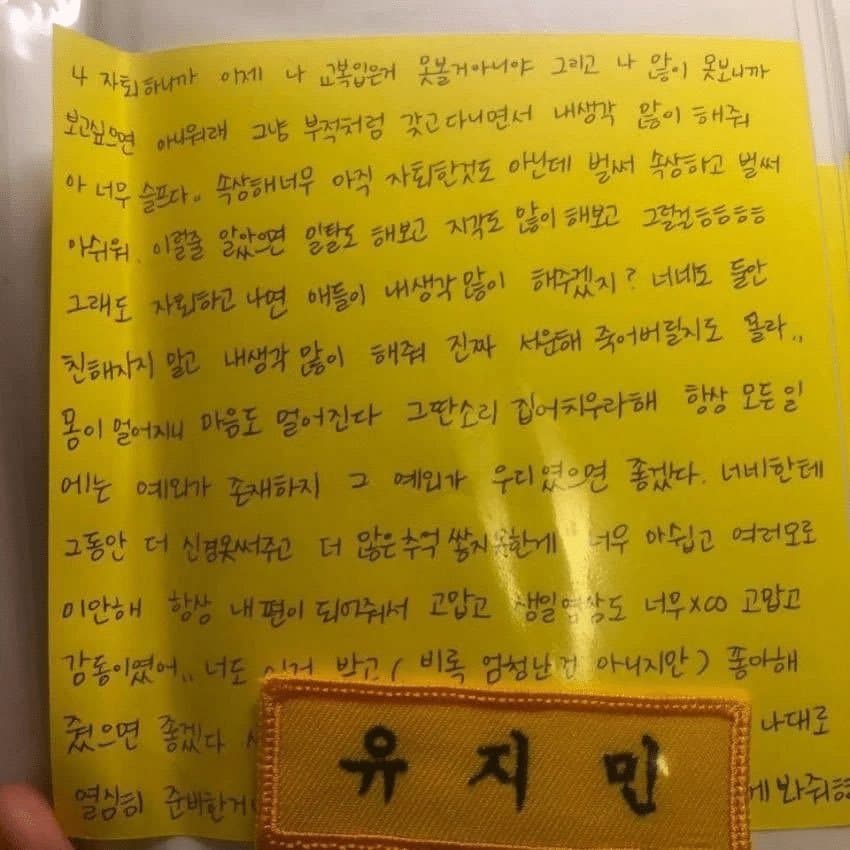 나 자퇴하니까 이제 나 교복입은거 못볼거아니야 그리고 나 많이 못보니까
보고싶으면 아니뭐래 그냥 부적처럼 갖고다니면서 내생각 많이 해줘
아 너무 슬프다. 속상해너무 아직 자퇴한것도 아닌데 벌써 속상하고 벌써
아쉬워. 이럴줄 알았으면 일탈도 해보고 지각도 많이 해보고 그럴걸ㅎㅎㅎㅎ
그래도 자퇴하고 나면 애들이 내생각 많이 해주겠지? 너네도 둘만
친해지지 말고 내생각 많이 해줘 진짜 서운해 죽어버릴지도 몰라..
몸이 멀어지니 마음도 멀어진다 그딴소리 집어치우라해 항상 모든일
에는 예외가 존재하지 그 예외가 우리였으면 좋겠다. 너네한테
그동안 더 신경못써주고 더 많은추억 쌓지못한게 너무 아쉽고 여러모로
미안해 항상 내편이 되어줘서 고맙고 생일영상도 너무x00 고맙고
감동이였어.. 너도 이거 받고 ( 비록 엄청난건 아니지만 ) 좋아해
줬으면 좋겠다 나대로
열심히 준비한거 게 봐줘ㅎㅎ
유지민